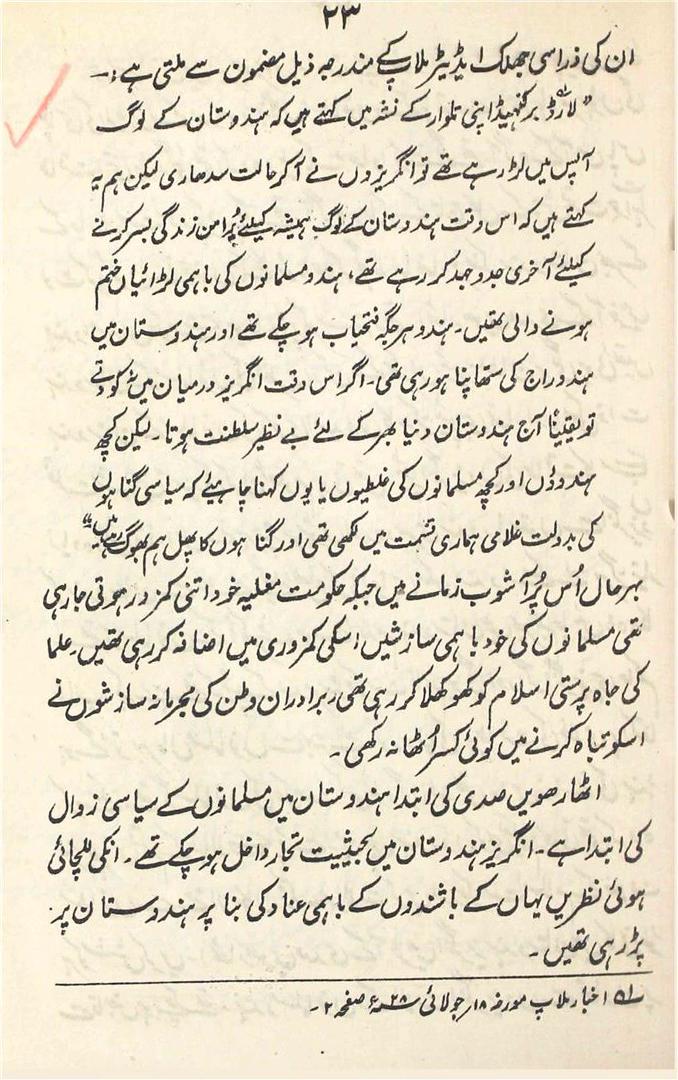 ۲۳
ان کی ذرا سی جھلک ایڈیٹر ملاپ کے مندرجہ ذیل مضمون سے ملتی ہے :۔
"لارڈ برکنہیڈ اپنی تلوار کے نشہ میں کہتے ہیں کہ ہندوستان کے لوگ
آپس میں لڑ رہے تھے تو انگریزوں نے آکر حالت سدھاری لیکن ہم یہ
کہتے ہیں کہ اس وقت ہندوستان کے لوگ ہمیشہ کیلئے پُرامن زندگی بسر کرنے
کیلئے آخری جدوجہد کر رہے تھے، ہندو مسلمانوں کی باہمی لڑائیاں ختم
ہونے والی تھیں۔ ہندو ہر جگہ فتحیاب ہو چکے تھے اور ہندوستان میں
ہندو راج کی ستھاپنا ہو رہی تھی۔ اگر اس وقت انگریز درمیان میں نہ کودتے
تو یقیناً آج ہندوستان دنیا بھر کے لئے بے نظیر سلطنت ہوتا۔ لیکن کچھ
ہندوؤں اور کچھ مسلمانوں کی غلطیوں یا یوں کہنا چاہیئے کہ سیاسی گناہوں
کی بدولت غلامی ہماری قسمت میں لکھی تھی اور گناہوں کا پھل ہم بھوگ رہے ہیں"
بہرحال اُس پُرآشوب زمانے میں جبکہ حکومت مغلیہ خود اتنی کمزور ہوتی جارہی
تھی مسلمانوں کی خود باہمی سازشیں اسکی کمزوری میں اضافہ کر رہی تھیں۔ علما
کی جاہ پرستی اسلام کو کھوکھلا کر رہی تھی، برادران وطن کی مجرمانہ سازشوں نے
اسکو تباہ کرنے میں کوئی کسر اُٹھا نہ رکھی۔
اٹھارھویں صدی کی ابتدا ہندوستان میں مسلمانوں کے سیاسی زوال
کی ابتدا ہے۔ انگریز ہندوستان میں بحیثیت تجار داخل ہو چکے تھے۔ انکی للچائی
ہوئی نظریں یہاں کے باشندوں کے باہمی عناد کی بنا پر ہندوستان پر
پڑ رہی تھیں۔
لہ اخبار ملاپ مورخہ ۱۸ر جولائی ۲۸ء صفحہ ۲۔